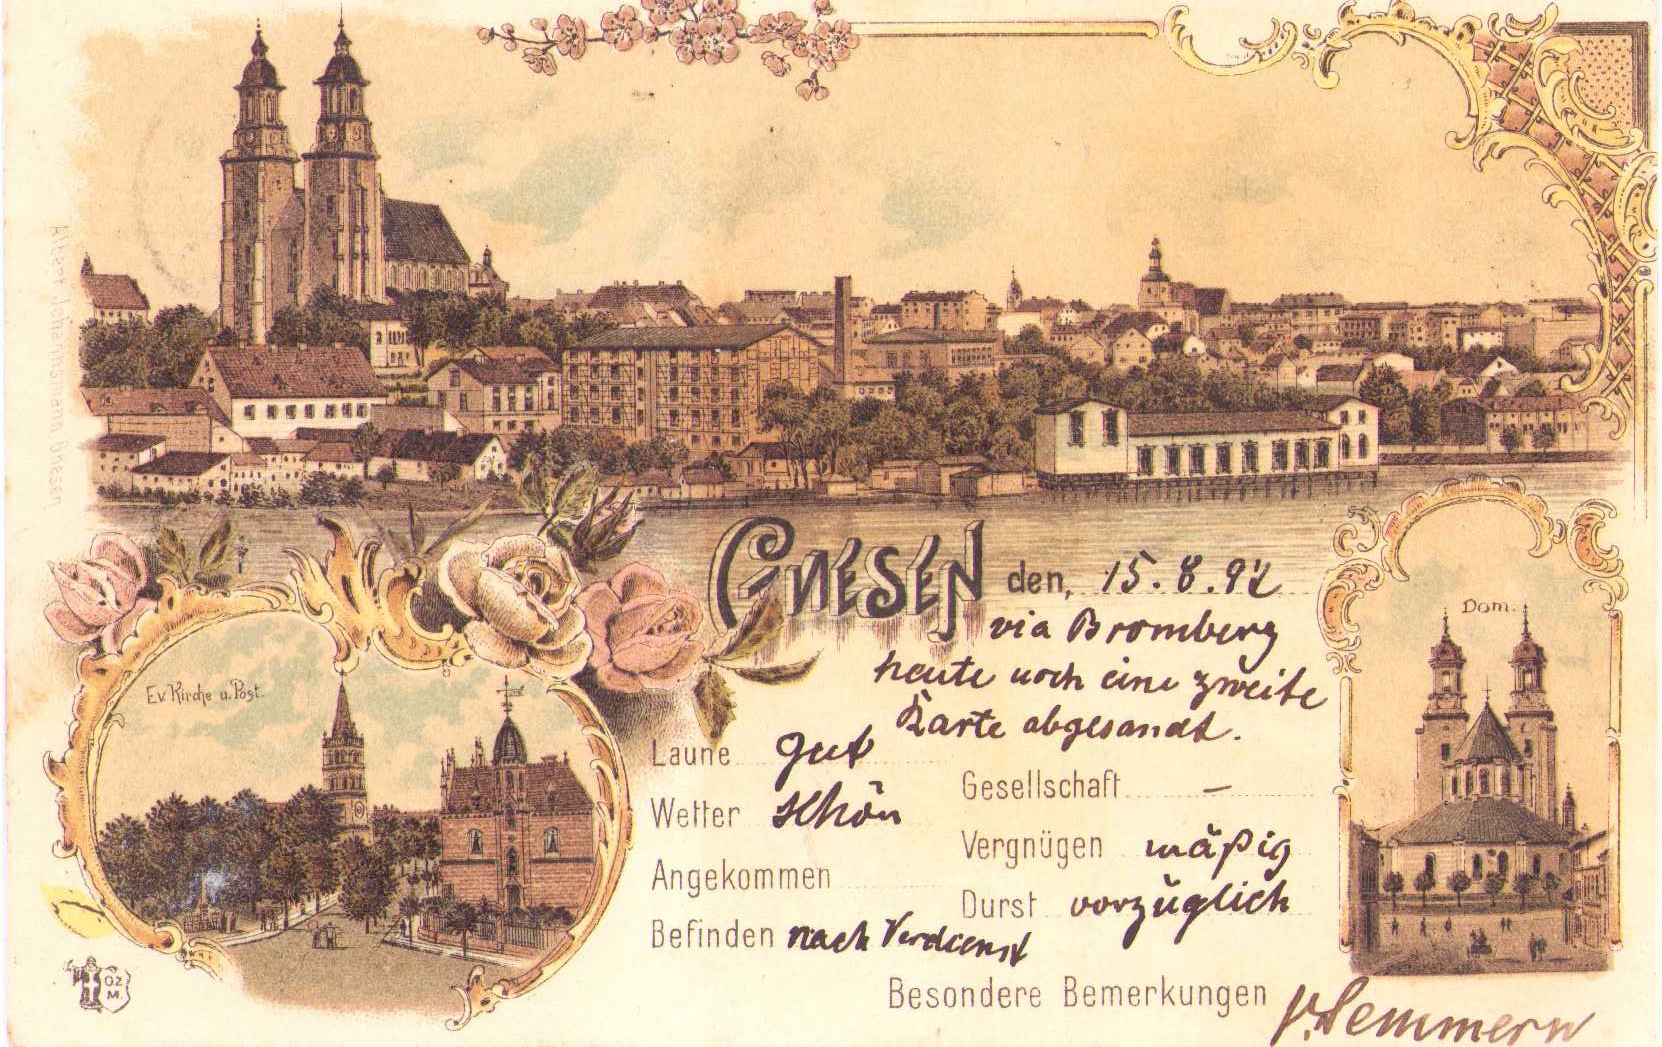 Albert Johannsmann, Gnesen
GNESEN den, 15. 8. 97
via Bromberg
heute noch eine zweite
Karte abgesandt.
Dom.
Ev. Kirche u. Post.
Laune gut
Gesellschaft –
Wetter schön
Vergnügen mäßig
Angekommen
Durst vorzüglich
Befinden nach Verdienst
Besondere Bemerkungen
ÖZ
M.